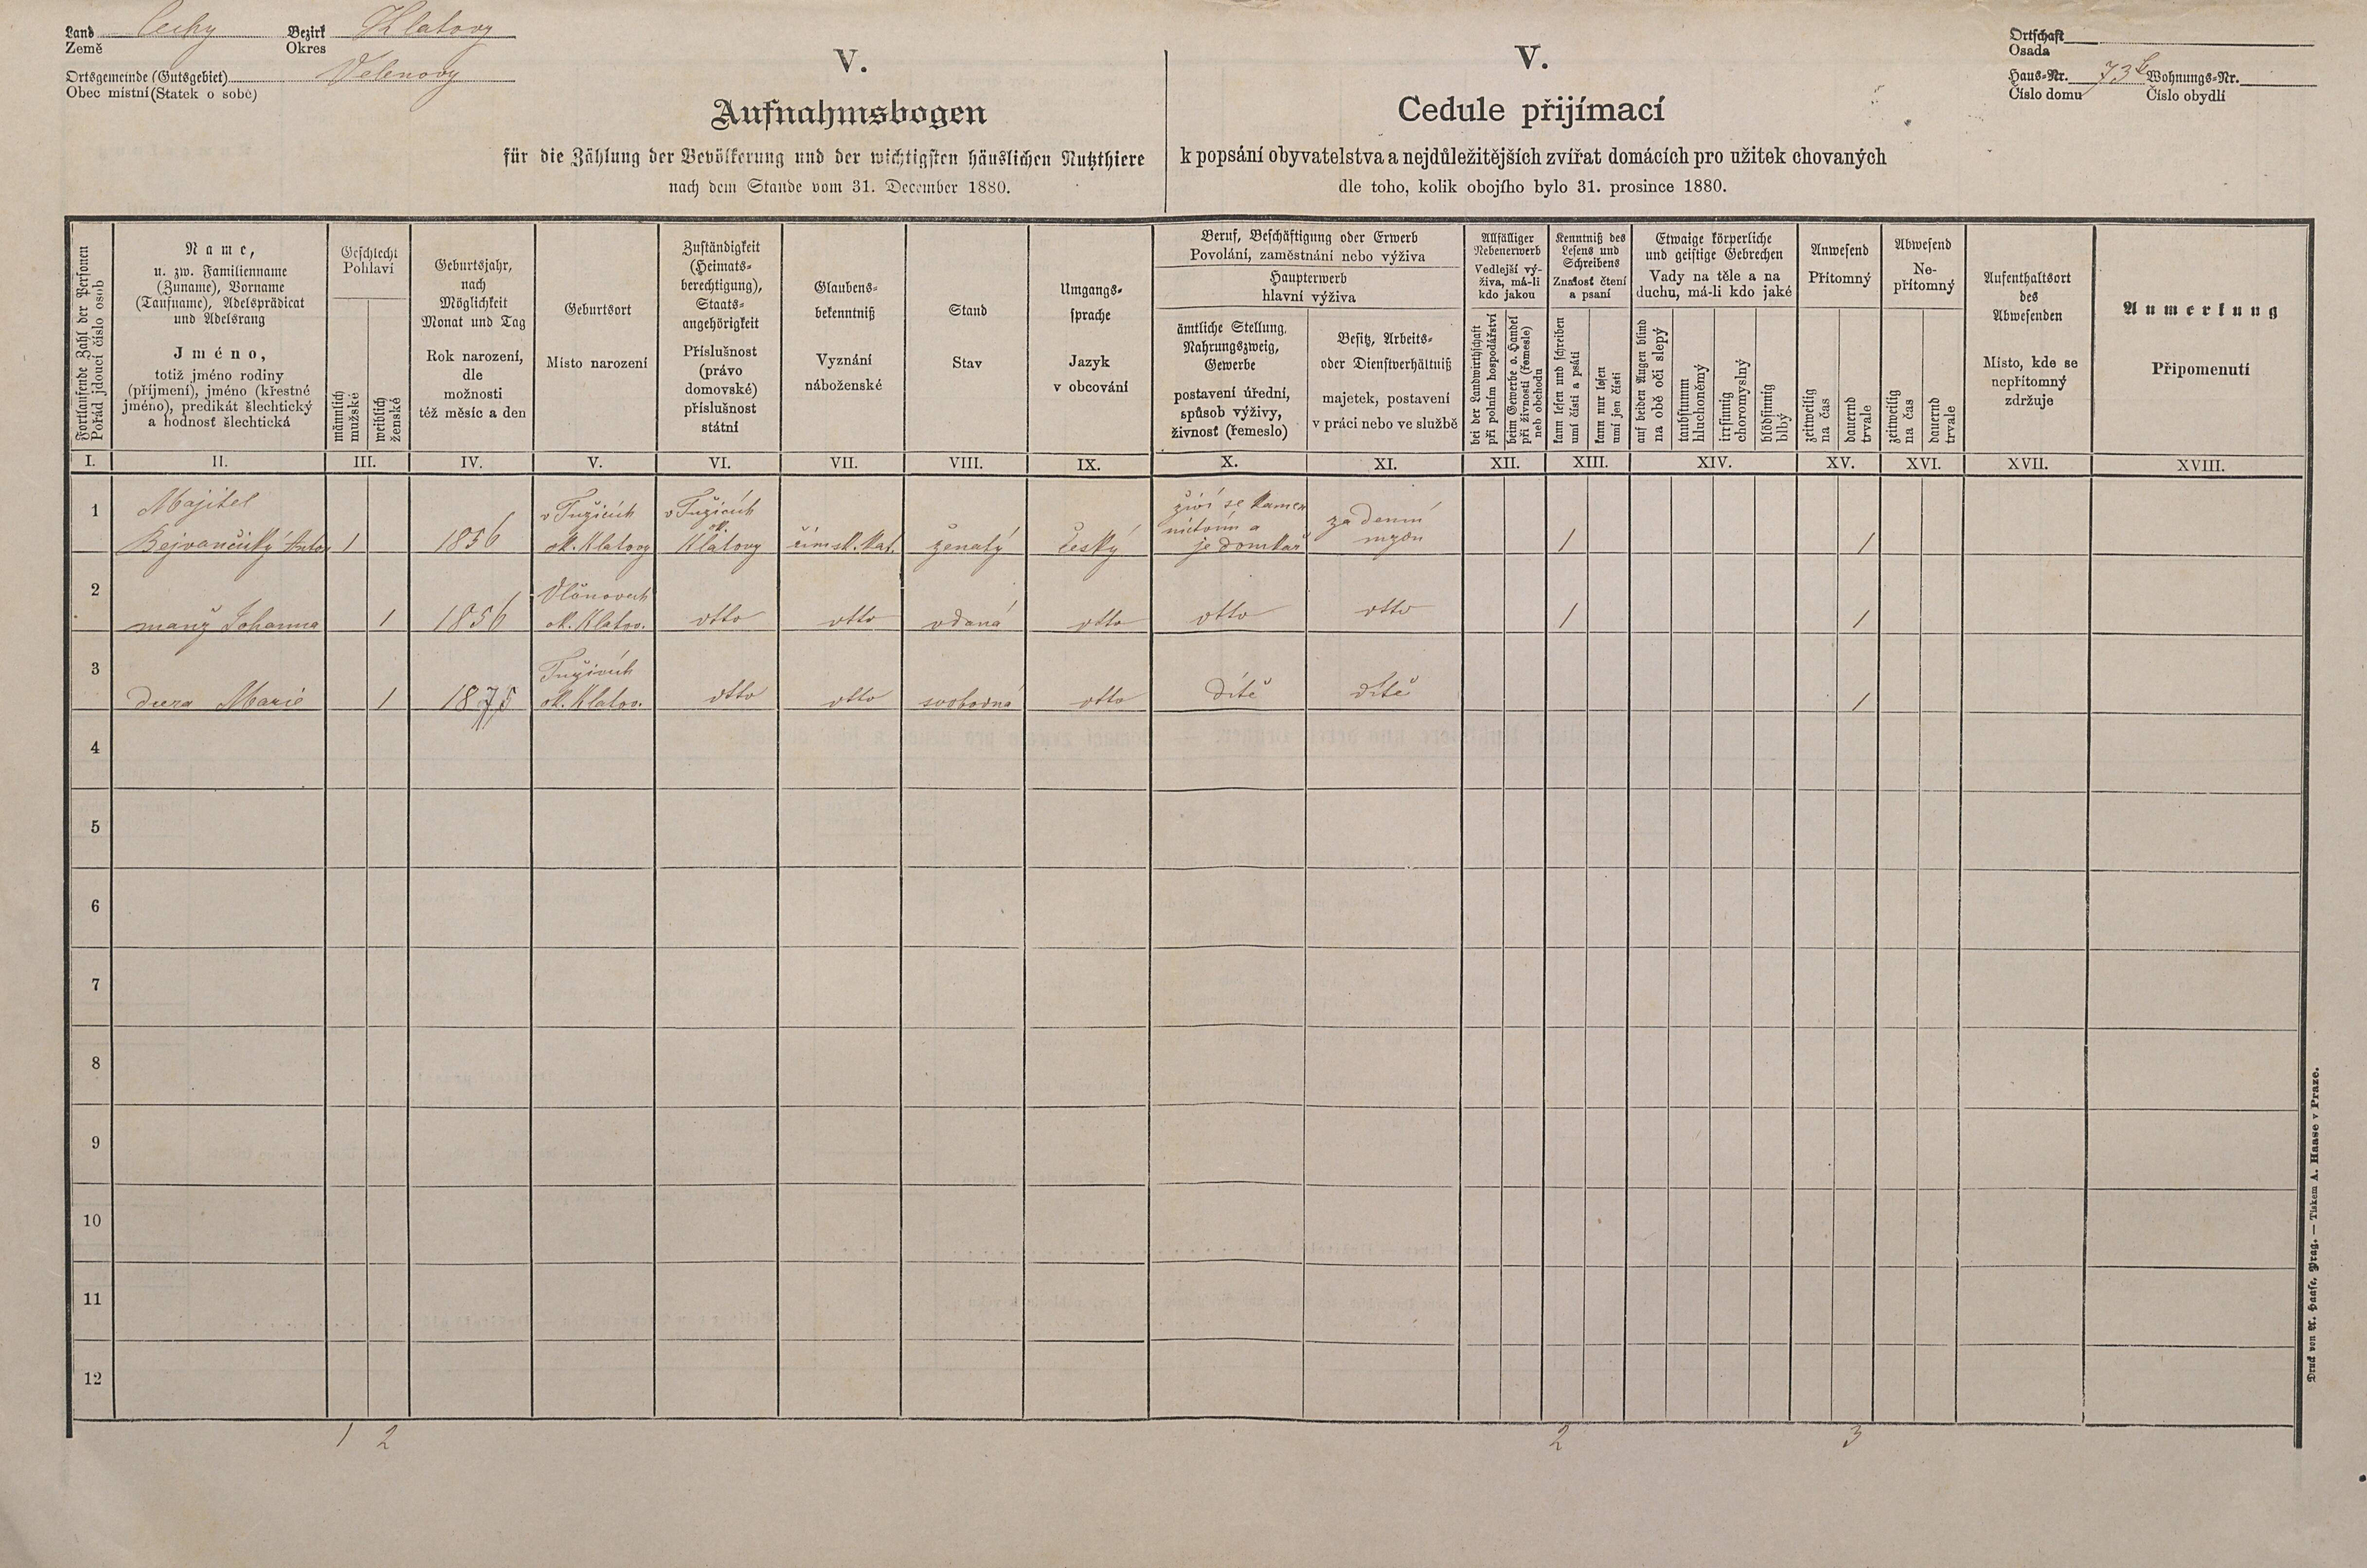 Land Čechy Bezirk Klatovy
Země Okres
Ortsgemeinde (Gutsgebiet) Velenovy
Obec místní (Statek o sobě)
Ortschaft
Osada
Haus-Nr. 73 Wohnungs-Nr.
Číslo domu Číslo obydlí
V.
Aufnahmsbogen
für die Zählung der Bevölkerung und der wichtigsten häuslichen Nutzthiere
nach dem Stande vom 31. December 1880.
V.
Cedule přijímací
k popsání obyvatelstva a nejdůležitějších zvířat domácích pro užitek chovaných
dle toho, kolik obojího bylo 31. prosince 1880.
Fortlaufende Zahl der Personen
Pořád jdoucí číslo osob
Name,
u. zw. Familienname
(Zuname), Vorname
(Taufname), Adelsprädicat
und Adelsrang
Jméno,
totiž jméno rodiny
(příjmení), jméno (křestné
jméno), predikát šlechtický
a hodnosť šlechtická
Geschlecht
Pohlaví
männlich
mužské
weiblich
ženské
Geburtsjahr,
nach
Möglichkeit
Monat und Tag
Rok narození,
dle
možnosti
též měsíc a den
Geburtsort
Místo narození
Zuständigkeit
(Heimats-
berechtigung),
Staats-
angehörigkeit
Příslušnost
(právo
domovské)
příslušnost
státní
Glaubens-
bekenntniß
Vyznání
náboženské
Stand
Stav
Umgangs-
sprache
Jazyk
v obcování
Beruf, Beschäftigung oder Erwerb
Povolání, zaměstnání nebo výživa
Haupterwerb
hlavní výživa
ämtliche Stellung,
Nahrungszweig,
Gewerbe
postavení úřední,
způsob výživy,
živnosť (řemeslo)
Besitz, Arbeits-
oder Dienstverhältniß
majetek, postavení
v práci nebo ve službě
Allfälliger
Nebenerwerb
Vedlejší vý-
živa, má-li
kdo jakou
bei der Landwirthschaft
při polním hospodářství
beim Gewerbe o. Handel
při živnosti (řemesle)
neb obchodu
Kenntniß des
Lesens und
Schreibens
Znalosť čtení
a psaní
kann lesen und schreiben
umí čísti a psáti
kann nur lesen
umí jen čísti
Etwaige körperliche
und geistige Gebrechen
Vady na těle a na
duchu, má-li kdo jaké
auf beiden Augen blind
na obě oči slepý
taubstumm
hluchoněmý
irrsinnig
choromyslný
blödsinnig
blbý
Anwesend
Přítomný
zeitweilig
na čas
dauernd
trvale
Abwesend
Ne-
přítomný
zeitweilig
na čas
dauernd
trvale
Aufenthaltsort
des
Abwesenden
Místo, kde se
nepřítomný
zdržuje
Anmerkung
Připomenutí
I. II. III. IV. V. VI. VII. VIII. IX. X. XI. XII. XIII. XIV. XV. XVI. XVII. XVIII.
Majitel v Tužicích v Tužicích živí se kamen
1 ok. nictvím a za denní
1 1856 ok. Klatovy Klatovy římsk. kat. ženatý český je domkař mzdu 1 1
2 ok. Klatov.
manž Johanna 1 1856 otto otto vdaná otto otto otto 1 1
3 Tužicích
dcera Marie 1 1875 ok. Klatov. otto otto svobodná otto dítě dítě 1
4
5
6
7
8
9
10
11
12
1 2 2 3
Druck von A. Haase, Prag. — Tiskem A. Haase v Praze.